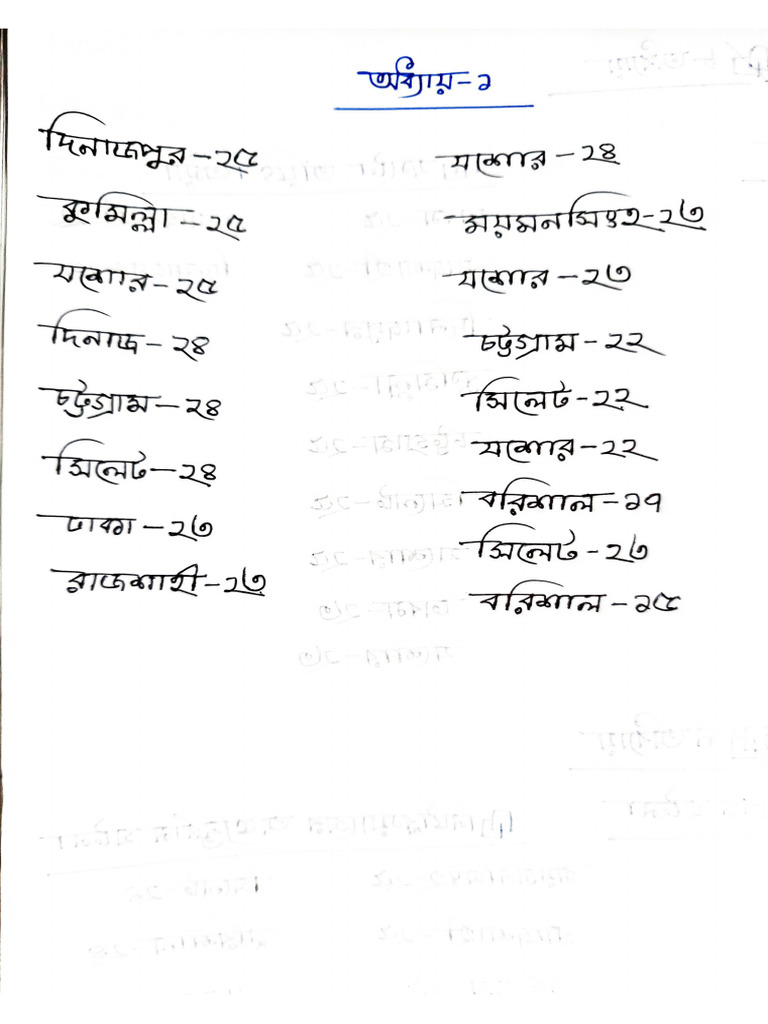 অধ্যায়-১
দিনাজপুর-২৫
কুমিল্লা-২৫
যশোর-২৫
দিনাজ-২৪
চট্টগ্রাম-২৪
সিলেট-২৪
ঢাকা-২৩
রাজশাহী-২৩
যশোর-২৪
ময়মনসিংহ-২৩
যশোর-২৩
চট্টগ্রাম-২২
সিলেট-২২
যশোর-২২
বরিশাল-১৭
সিলেট-২৩
বরিশাল-১৫